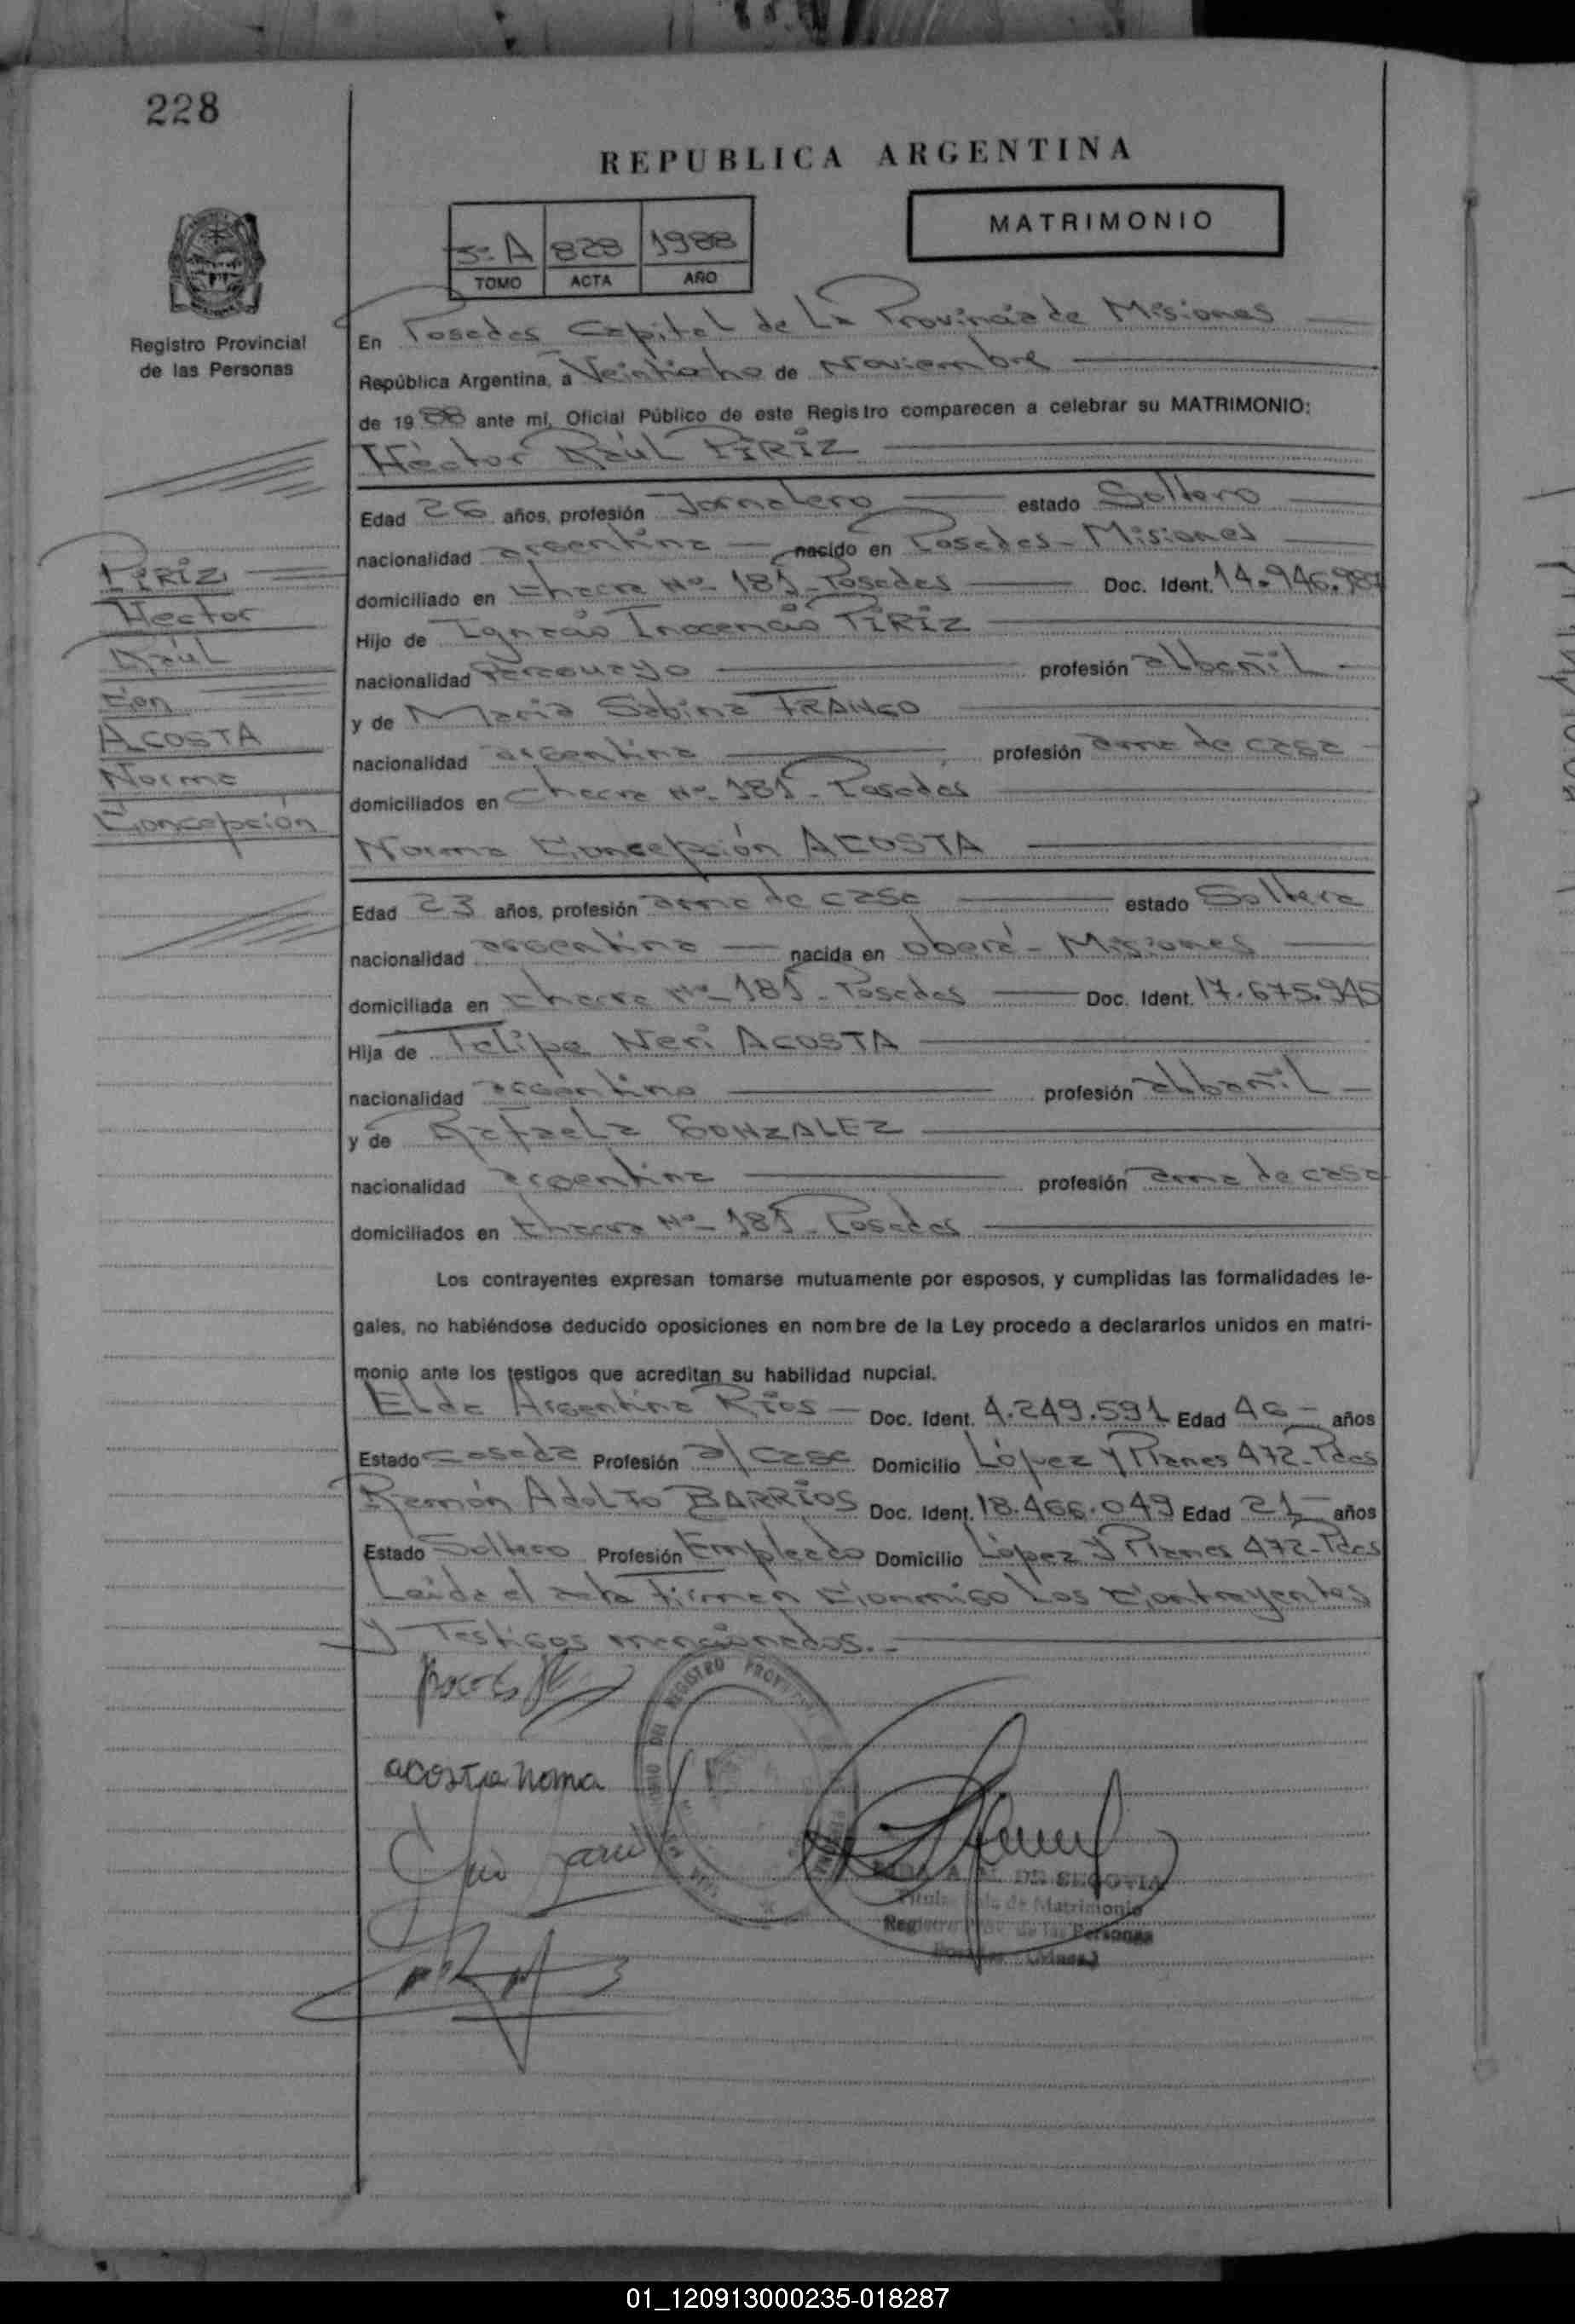 228
REPUBLICA ARGENTINA
MATRIMONIO
5º A 828 1988
TOMO ACTA AÑO
Registro Provincial
de las Personas
En Posadas Capital de La Provincia de Misiones
República Argentina, a Veintiocho de Noviembre
de 1988 ante mí, Oficial Público de este Registro comparecen a celebrar su MATRIMONIO:
Héctor Raúl PIRIZ
Edad 26 años, profesión Jornalero estado Soltero
nacionalidad argentina nacido en Posadas - Misiones
domiciliado en Chacra Nº 181 - Posadas Doc. Ident. 14.946.987
Hijo de Ignacio Inocencio PIRIZ
nacionalidad Paraguayo profesión albañil
y de Maria Sabina FRANCO
nacionalidad argentina profesión ama de casa
domiciliados en Chacra Nº 181 - Posadas
Norma Concepción ACOSTA
Edad 23 años, profesión ama de casa estado Soltera
nacionalidad argentina nacida en Oberá - Misiones
domiciliada en Chacra Nº 181 - Posadas Doc. Ident. 17.675.945
Hija de Felipe Neri ACOSTA
nacionalidad argentino profesión albañil
y de Rafaela GONZALEZ
nacionalidad argentina profesión ama de casa
domiciliados en Chacra Nº 181 - Posadas
PIRIZ
Hector
Raúl
Con
ACOSTA
Norma
Concepción
Los contrayentes expresan tomarse mutuamente por esposos, y cumplidas las formalidades le-
gales, no habiéndose deducido oposiciones en nombre de la Ley procedo a declararlos unidos en matri-
monio ante los testigos que acreditan su habilidad nupcial.
Elda Argentina Rios Doc. Ident. 4.249.591 Edad 46 años
Estado Casada Profesión a/casa Domicilio López Y Planes 472 - Pdas
Ramón Adolfo BARRIOS Doc. Ident. 18.466.049 Edad 21 años
Estado Soltero Profesión Empleado Domicilio López Y Planes 472 - Pdas
Leida el acta Firman Conmigo Los Contrayentes
Y Testigos mencionados.-
REGISTRO
acosta Noma
DE SEGOVIA
de Matrimonio
Registro de las Personas
01_120913000235-018287